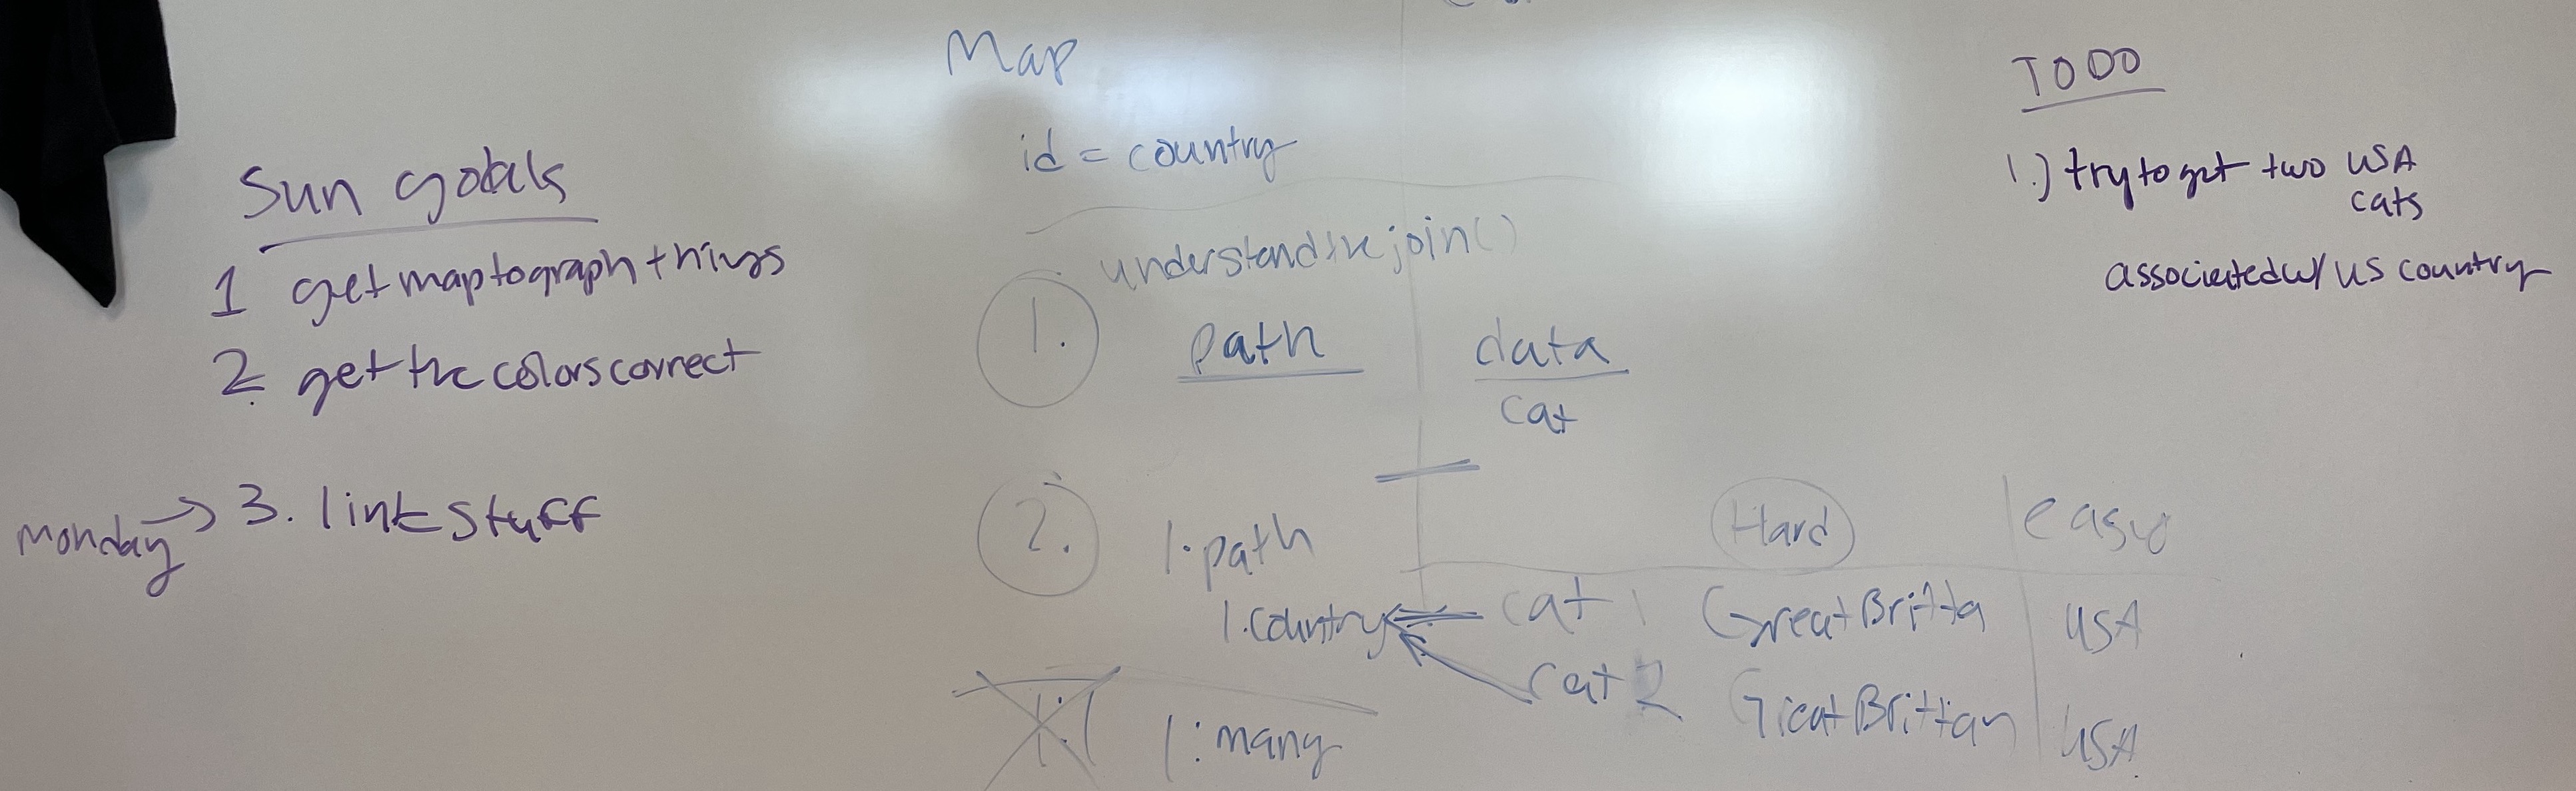 Sun goals
1 get map to graph things
2. get the colors correct
monday → 3. link stuff
Map
id = country
understand the join()
1. path data
cat
2. 1. path
Hard easy
1. country cat 1 Great Britta USA
cat 2 Great Brittan USA
1:1 1:many
TODO
1.) try to get two USA
cats
associated w/ US country